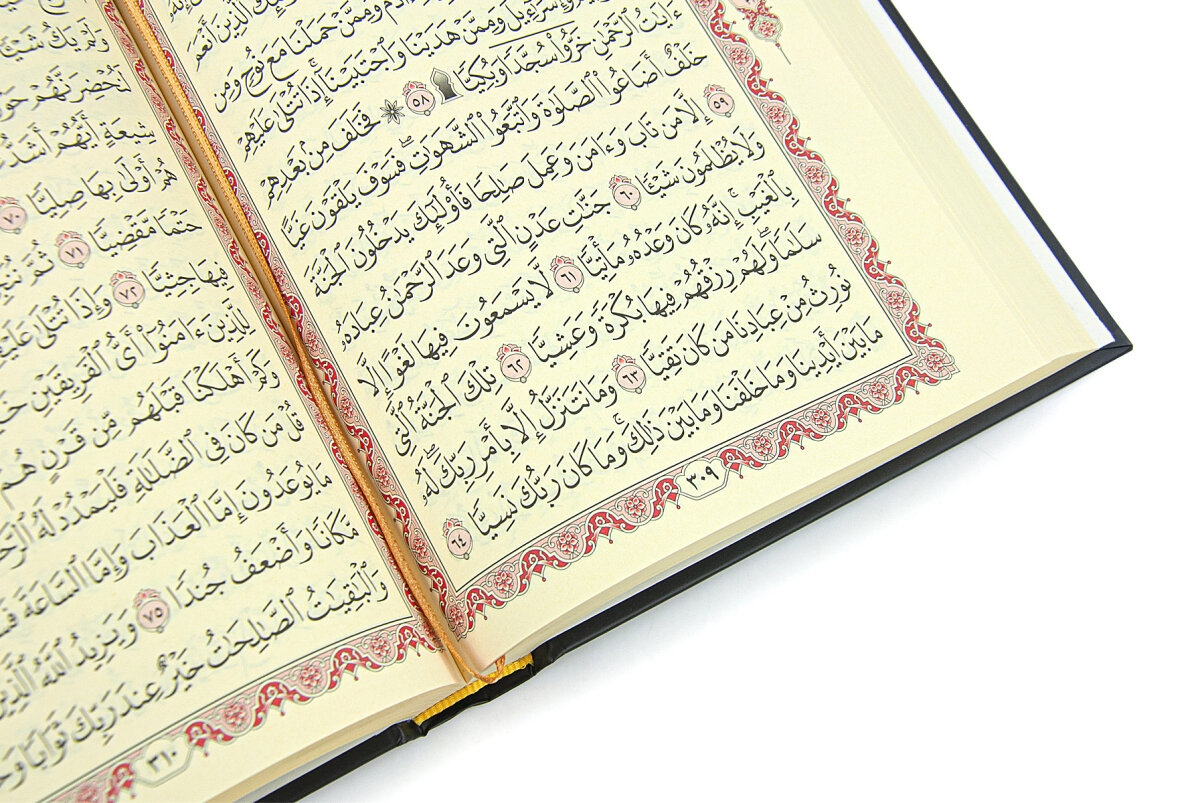 ٱلَّذِينَ أَنْعَمَ
ءَادَمَ وَمِمَّنْ حَمَلْنَا مَعَ نُوحٍ وَمِن
وَإِسْرَٰٓءِيلَ وَمِمَّنْ هَدَيْنَا وَٱجْتَبَيْنَآ إِذَا تُتْلَىٰ عَلَيْهِمْ
ءَايَٰتُ ٱلرَّحْمَٰنِ خَرُّوا۟ سُجَّدًا وَبُكِيًّا ۩ ٥٨ ۞ فَخَلَفَ مِنۢ بَعْدِهِمْ
خَلْفٌ أَضَاعُوا۟ ٱلصَّلَوٰةَ وَٱتَّبَعُوا۟ ٱلشَّهَوَٰتِ ۖ فَسَوْفَ يَلْقَوْنَ غَيًّا
٥٩ إِلَّا مَن تَابَ وَءَامَنَ وَعَمِلَ صَٰلِحًا فَأُو۟لَٰٓئِكَ يَدْخُلُونَ ٱلْجَنَّةَ
وَلَا يُظْلَمُونَ شَيْـًٔا ٦٠ جَنَّٰتِ عَدْنٍ ٱلَّتِى وَعَدَ ٱلرَّحْمَٰنُ عِبَادَهُۥ
بِٱلْغَيْبِ ۚ إِنَّهُۥ كَانَ وَعْدُهُۥ مَأْتِيًّا ٦١ لَّا يَسْمَعُونَ فِيهَا لَغْوًا إِلَّا
سَلَٰمًا ۖ وَلَهُمْ رِزْقُهُمْ فِيهَا بُكْرَةً وَعَشِيًّا ٦٢ تِلْكَ ٱلْجَنَّةُ ٱلَّتِى
نُورِثُ مِنْ عِبَادِنَا مَن كَانَ تَقِيًّا ٦٣ وَمَا نَتَنَزَّلُ إِلَّا بِأَمْرِ رَبِّكَ ۖ لَهُۥ
مَا بَيْنَ أَيْدِينَا وَمَا خَلْفَنَا وَمَا بَيْنَ ذَٰلِكَ ۚ وَمَا كَانَ رَبُّكَ نَسِيًّا ٦٤
٣٠٩
وَلَمْ يَكُ شَيْـًٔا
لَنُحْضِرَنَّهُمْ
شِيعَةٍ أَيُّهُمْ أَشَدُّ
هُمْ أَوْلَىٰ بِهَا صِلِيًّا ٧٠
حَتْمًا مَّقْضِيًّا ٧١ ثُمَّ
فِيهَا جِثِيًّا ٧٢ وَإِذَا تُتْلَىٰ
لِلَّذِينَ ءَامَنُوٓا۟ أَىُّ ٱلْفَرِيقَيْنِ
وَكَمْ أَهْلَكْنَا قَبْلَهُم مِّن قَرْنٍ هُمْ
قُلْ مَن كَانَ فِى ٱلضَّلَٰلَةِ فَلْيَمْدُدْ لَهُ
مَا يُوعَدُونَ إِمَّا ٱلْعَذَابَ وَإِمَّا ٱلسَّاعَةَ
مَّكَانًا وَأَضْعَفُ جُندًا ٧٥ وَيَزِيدُ ٱللَّهُ
وَٱلْبَٰقِيَٰتُ ٱلصَّٰلِحَٰتُ خَيْرٌ عِندَ رَبِّكَ ثَوَابًا
٣١٠